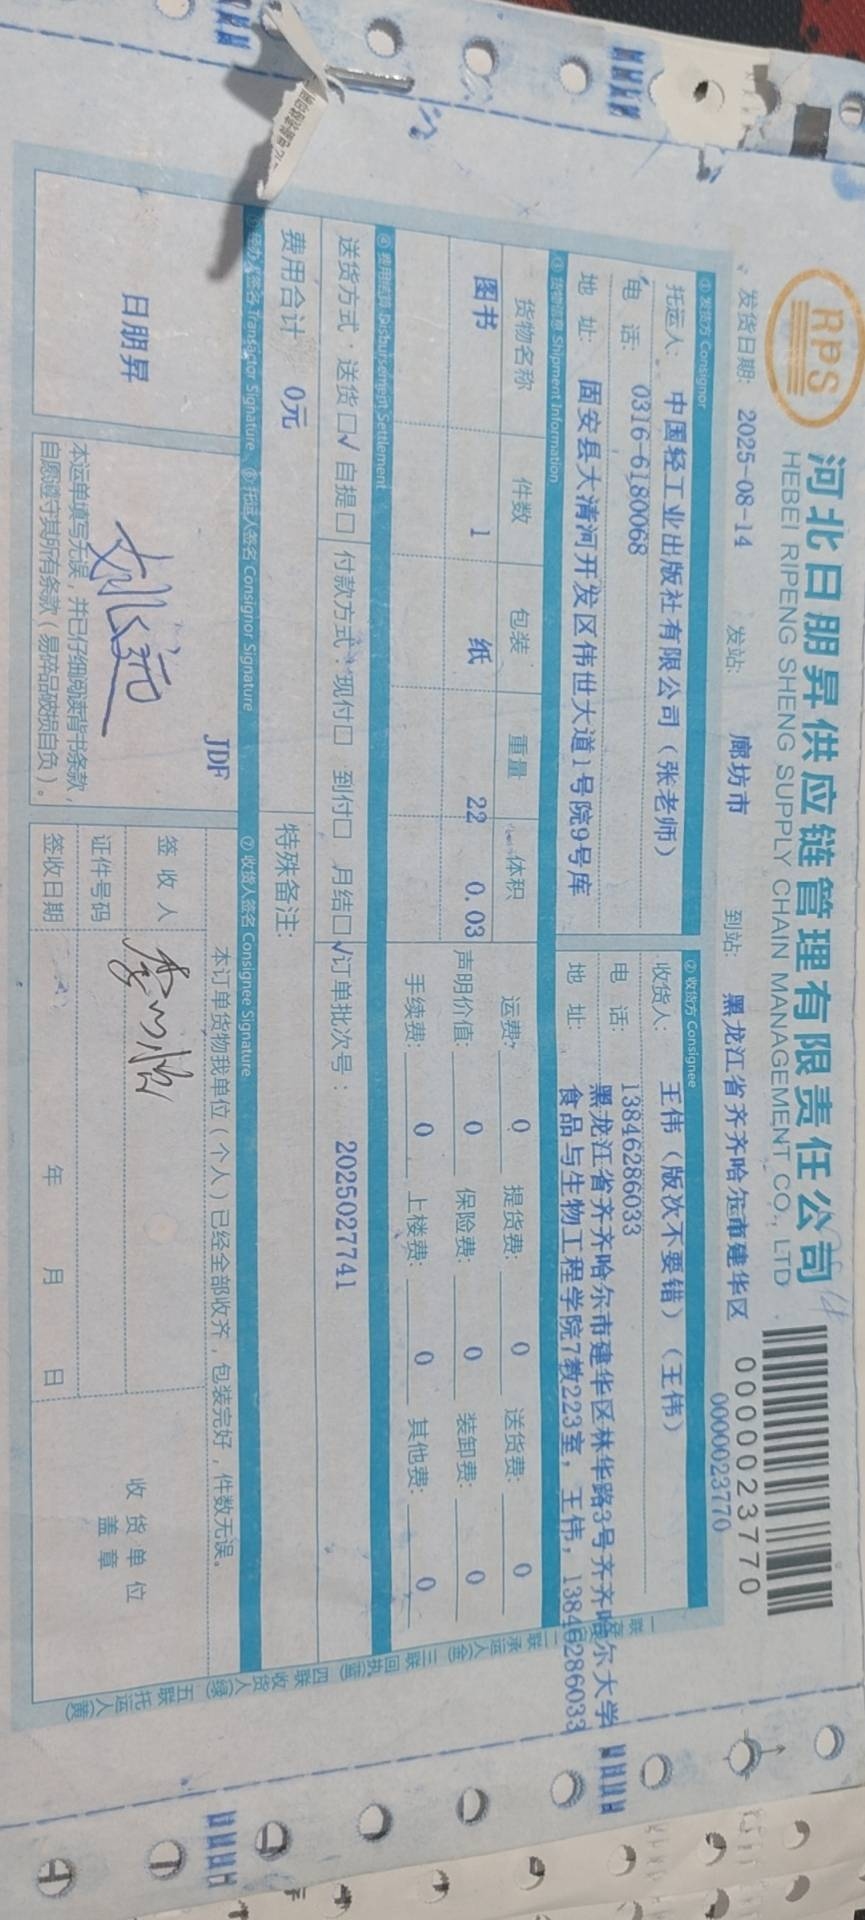 RPS
河北日朋昇供应链管理有限责任公司
HEBEI RIPENG SHENG SUPPLY CHAIN MANAGEMENT CO., LTD
0000023770
0000023770
发货日期: 2025-08-14 发站: 廊坊市 到站: 黑龙江省齐齐哈尔市建华区
① 发货方 Consignor
托运人: 中国轻工业出版社有限公司（张老师）
电 话: 0316-6180068
地 址: 固安县大清河开发区伟世大道1号院9号库
② 收货方 Consignee
收货人: 王伟（版次不要错）（王伟）
电 话: 13846286033
地 址: 黑龙江省齐齐哈尔市建华区林华路3号齐齐哈尔大学
食品与生物工程学院7教223室, 王伟, 13846286033
③ 货物信息 Shipment Information
货物名称 件数 包装 重量 体积
图书 1 纸 22 0.03
运费: 0 提货费: 0 送货费: 0
声明价值: 0 保险费: 0 装卸费: 0
手续费: 0 上楼费: 0 其他费: 0
④ 费用结算 Disbursement Settlement
送货方式: 送货口√ 自提口 付款方式: 现付口 到付口 月结口√ 订单批次号: 2025027741
费用合计 0元 特殊备注:
⑤ 经办人签名 Transactor Signature
日朋昇
⑥ 托运人签名 Consignor Signature
JDF
本运单填写无误，并已仔细阅读背书条款，
自愿遵守其所有条款（易碎品破损自负）。
⑦ 收货人签名 Consignee Signature
本订单货物我单位（个人）已经全部收齐，包装完好，件数无误。
签 收 人
证件号码
签收日期 年 月 日
收 货 单 位
盖 章
三联回执(蓝) 四联收货人(绿) 五联托运人(黄)